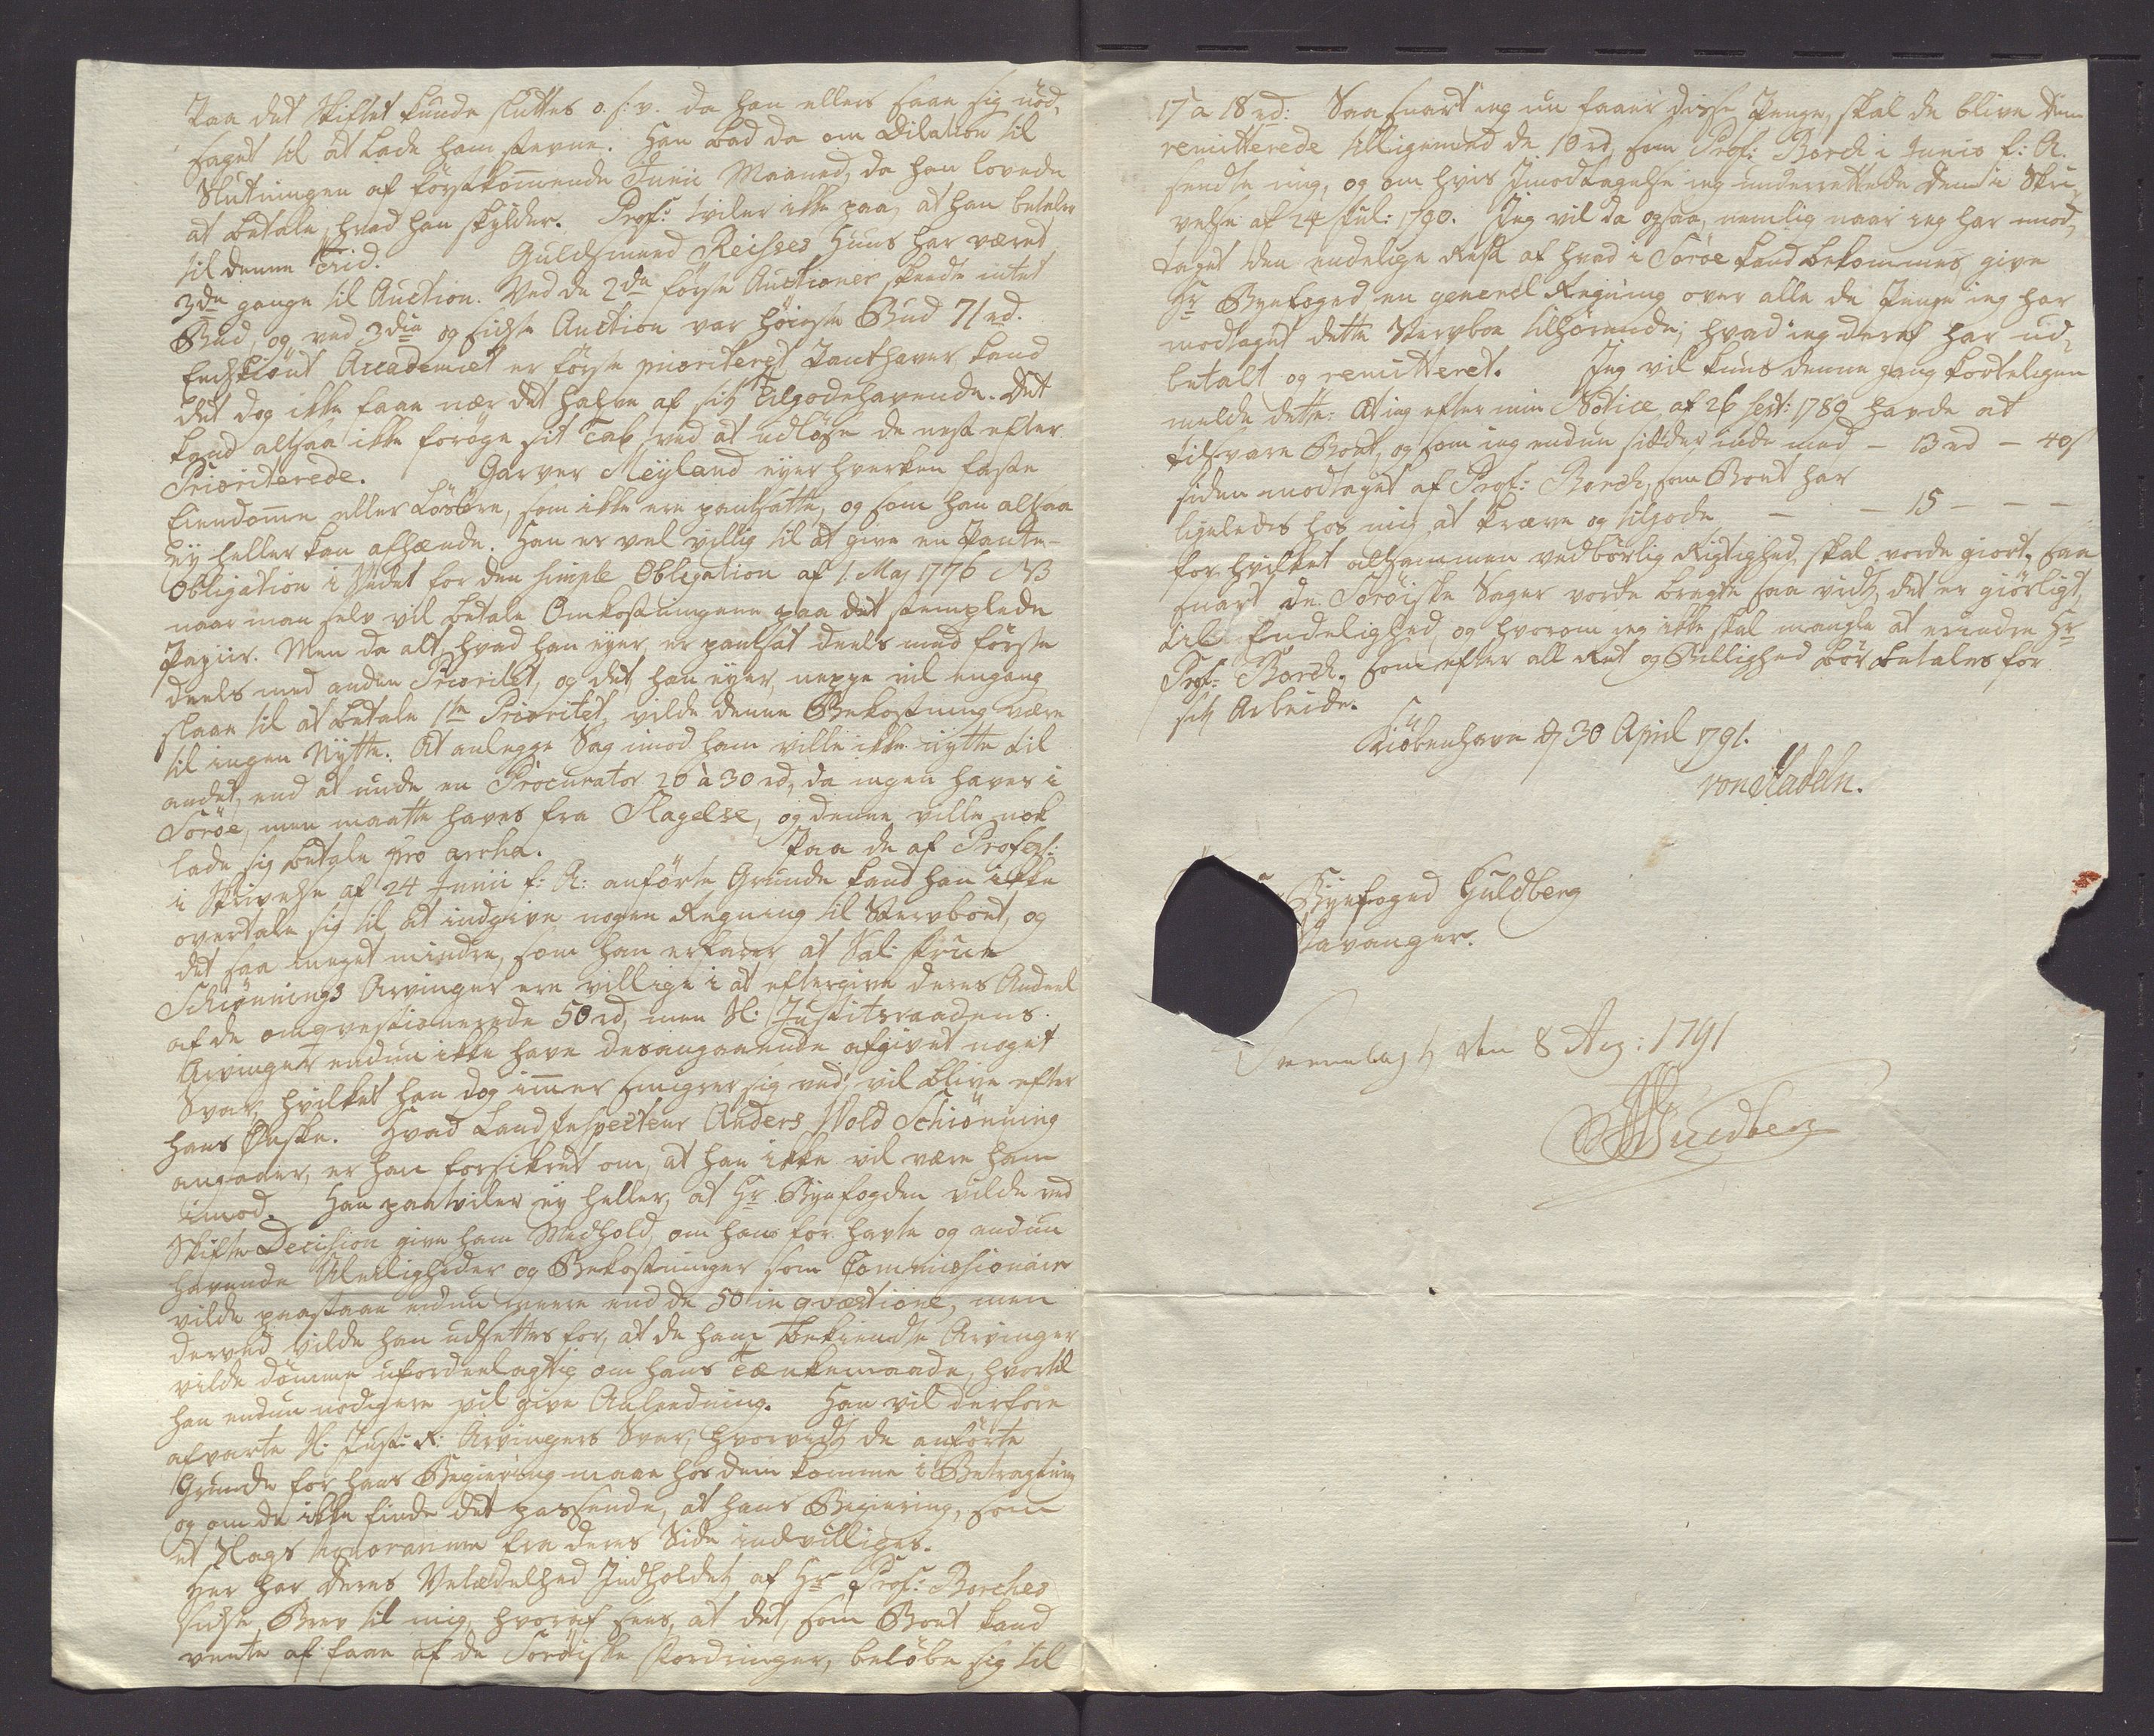 paa det Skiftet kunde sluttes o. s: v. da han ellers saae sig nöd-
saget til at lade ham stevne. Han bad da om Dilation til
Slutningen af förstkommende Junii Maaned, da han lovede
at betale, hvad han skylder. Prof: tviler ikke paa, at han betaler
til denne Tid. Guldsmeed Reisses Huus har været
3de gange til Auction. Ved de 2de förste Auctioner skeedte intet
Bud, og ved 3die og sidste Auction var höieste Bud 71 rd.
Endskiönt Academiet er förste prioriteret Panthaver, kand
det dog ikke faae nær det halve af sit Tilgodehavende. Det
kand altsaa ikke foröge sit Tab ved at udlöse de nest efter
Prioriterede. Garver Meyland eyer hverken faste
Eiendomme eller Lösöre, som ikke ere pantsatte, og som han altsaa
ey heller kan afhænde. Han er vel villig til at give en Pante-
Obligation i Stedet for den simple Obligation af 1. Maj 1776 NB
naar man selv vil betale Omkostningerne paa det stemplede
Papiir. Men da alt, hvad han eyer, er pantsat deels med förste
deels med anden Prioritet, og det han eyer, neppe vil engang
slaae til at betale 1ste Prioritet, vilde denne Bekostning være
til ingen Nytte. At anlegge Sag imod ham ville ikke nytte til
andet, end at unde en Procurator 20 à 30 rd, da ingen haves i
Soröe, men maatte haves fra Slagelse, og denne ville nok
lade sig betale pro arrha. Paa de af Profess:
i Skrivelse af 24 Junii f: A: anförte Grunde kand han ikke
overtale sig til at indgive nogen Regning til Stervboet, og
det saa meget mindre, som han erfarer at Sal: Frue
Schiönnings Arvinger ere villige i at eftergive deres Andeel
af de omqvestionerede 50 rd, men Sl: Justitsraadens
Arvinger endnu ikke have desangaaende afgivet noget
Svar, hvilket han dog immer smigrer sig ved, vil blive efter
hans Önske. Hvad Land Inspecteur Anders Wold Schiönning
angaaer, er han forsikret om, at han ikke vil være ham
imod. Han paatviler ey heller, at Hr Byefogden vilde ved
Skifte Decision give ham Medhold, om han for havte og endnu
havende Uleiligheder og Bekostninger som Commissionair
vilde paastaae endnu meere end de 50 in qvæstione, men
derved vilde han udsettes for, at de ham bekiendte Arvinger
vilde dömme ufordeelagtig om hans Tænkemaade, hvortil
han endnu nödigere vil give Anledning. Han vil derfore
afvarte Sl: Just: R: Arvingers Svar, hvorvidt de anförte
Grunde for hans Begiering maae hos dem komme i Betragtning
og om de ikke finde det passende, at hans Begiering, som
et Slags honorarium fra deres Side indvilliges.
Her har Deres Velædelhed Indholdet af Hr Prof: Borches
sidste Brev til mig, hvoraf sees, at det, som Boet kand
vente at faae af de Soröiske Fordringer, belöbe sig til
17 a 18 rd: Saa snart ieg nu faaer disse Penge, skal de blive Dem
remitterede tilligemed de 10 rd, som Prof: Borch i Junio f: A.
sendte mig, og om hvis Imodtagelse ieg underrettede Dem i Skri-
velse af 24 Jul: 1790. Jeg vil da ogsaa, nemlig naar ieg har mod-
taget den endelige Rest af hvad i Soröe kand bekommes, give
Hr Byefoged en general Regning over alle de Penge ieg har
modtaget dette Stervboe tilhörende; hvad ieg deraf har ud-
betalt og remitteret. Jeg vil kuns denne gang korteligen
melde dette: At ieg efter min Notice af 26 Sept: 1789 havde at
tilsvare Boet, og som ieg endnu sidder inde med – 13 rd – 40 s
siden modtaget af Prof: Borch, som Boet har
ligeledes hos mig at kræve og tilgode – – 15 – – –
for hvilket altsammen vedbörlig Rigtighed skal vorde giort, saa
snart de Soröiske Sager vorde bragte saa vidt det er giörligt,
til Endelighed, og hvorom ieg ikke skal mangle at erindre Hr
Prof: Borch, som efter all Ret og Billighed bör betales for
sit Arbeide.
Kiöbenhavn d 30 April 1791.
von Stadeln.
Byefoged Guldberg
Stavanger.
den 8 Aug: 1791
Guldberg